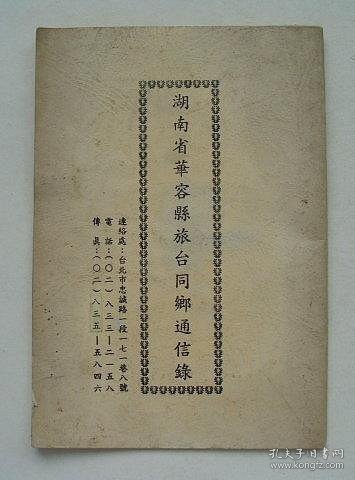 湖南省華容縣旅台同鄉通信錄
連絡處：台北市忠誠路一段一七一巷八號
電話：（〇二）八三三—二一五八
傳真：（〇二）八三五—五八四六
孔夫子旧书网